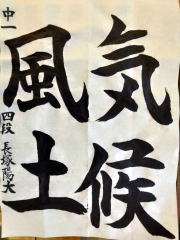 気候
風土
中一 四段 長塚陽大